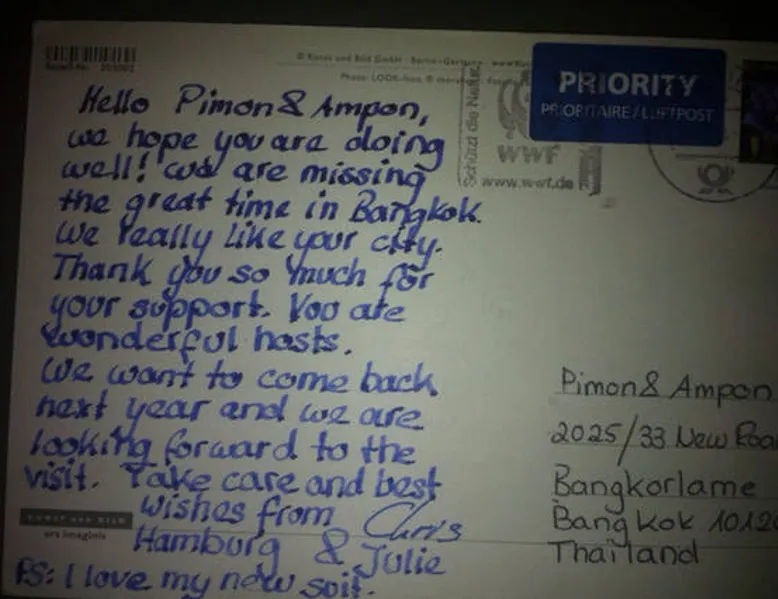 © Kunst und Bild GmbH · Berlin · Germany
Hello Pimon & Ampon,
we hope you are doing
well! We are missing
the great time in Bangkok.
We really like your city.
Thank you so much for
your support. You are
wonderful hosts.
We want to come back
next year and we are
looking forward to the
visit. Take care and best
wishes from Chris
Hamburg & Julie
PS: I love my new suit.
KUNST UND BILD
ars imaginis
Schützt die Natur
WWF
www.wwf.de
PRIORITY
PRIORITAIRE/LUFTPOST
Pimon & Ampon
2025/33 New Roa
Bangkorlame
Bangkok 1012
Thailand